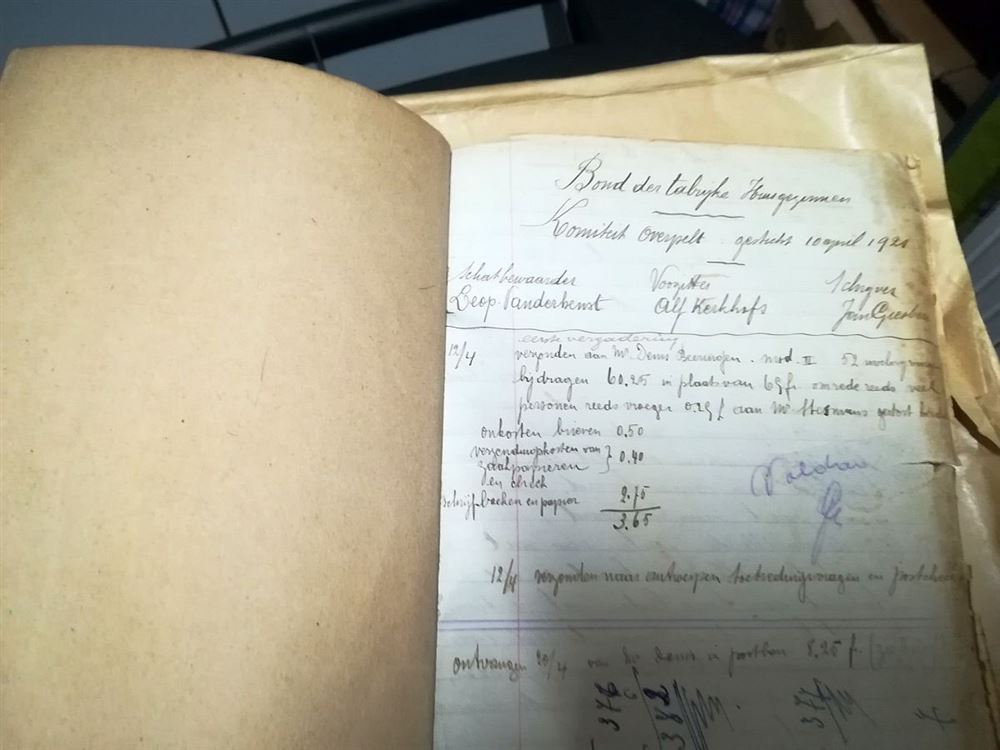 Bond der talrijke Huisgezinnen
Komiteit Overpelt gesticht 10 april 1921
Schatbewaarder Voorzitter Schryver
Leop. Vanderbenst Alf Kerkhofs Jan
eerste vergadering
12/4 verzonden aan Mr. Denis . mod. II 52
bijdragen 60.25 in plaats van 65 fr. omrede reeds veel
personen reeds vroeger 0.25 f aan Mr gestort
onkosten brieven 0.50
verzendingskosten van } 0.40
zaakpapieren
en check
schrijfboeken en papier 2.75
3.65
Voldaan
12/4 verzonden naar antwerpen toetredingsvragen en
ontvangen 20/4 van Mr Denis in postbon 8.25 f.
376
382
377